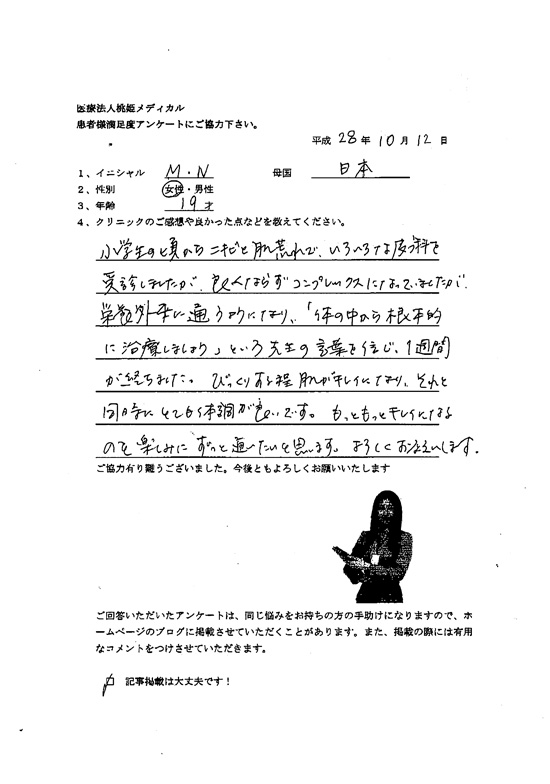 医療法人桃姫メディカル
患者様満足度アンケートにご協力下さい。
平成 28 年 10 月 12 日
1、イニシャル M・N 母国 日本
2、性別 女性・男性
3、年齢 19 才
4、クリニックのご感想や良かった点などを教えてください。
小学生の頃からニキビと肌荒れで、いろいろな皮膚科を
受診しましたが、良くならずコンプレックスになっていましたが、
巣鴨外来に通うようになり、「体の中から根本的
に治療しましょう」という先生の言葉を信じ、1週間
が経ちました。びっくりする程肌がキレイになり、それと
同時にとても体調が良いです。もっともっとキレイになる
のを楽しみにずっと通いたいと思います。よろしくお願いします。
ご協力有り難うございました。今後ともよろしくお願いいたします
ご回答いただいたアンケートは、同じ悩みをお持ちの方の手助けになりますので、ホ
ームページのブログに掲載させていただくことがあります。また、掲載の際には有用
なコメントをつけさせていただきます。
記事掲載は大丈夫です！